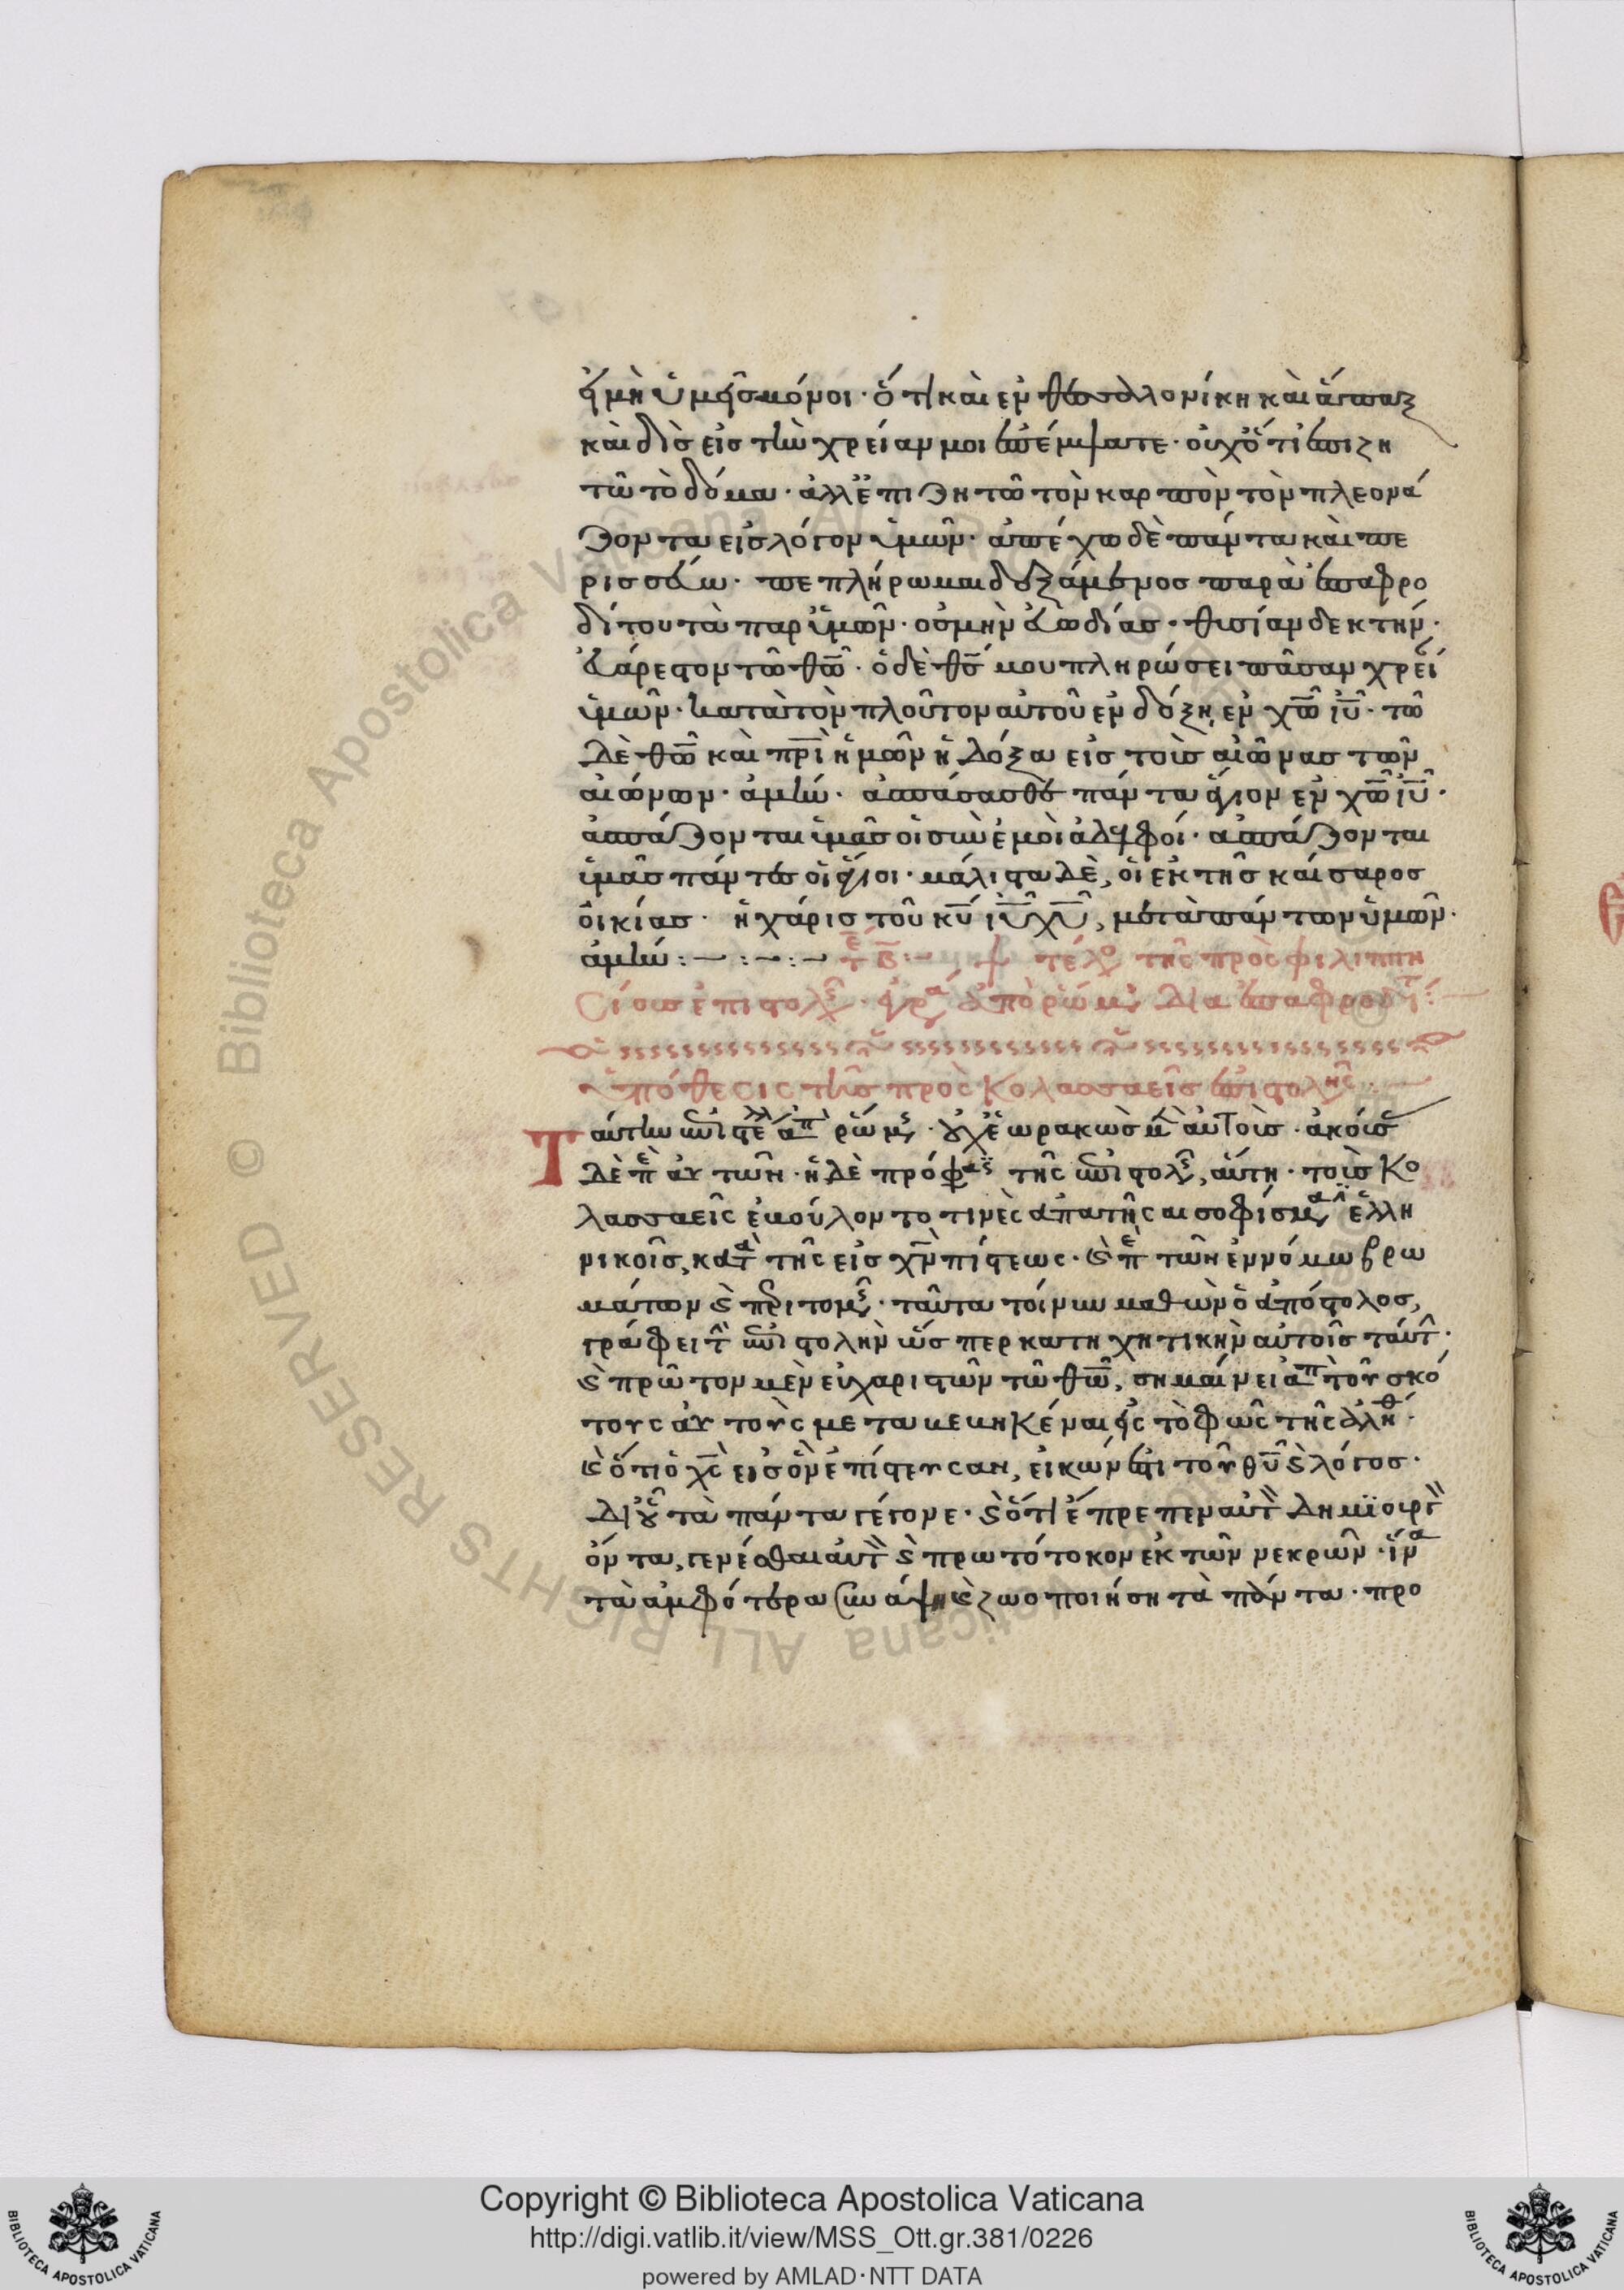 εἰ μὴ ὑμεῖς μόνοι· ὅτι καὶ ἐν θεσσαλονίκη καὶ ἅπαξ
καὶ δὶς εἰς τὴν χρείαν μοι ἐπέμψατε· οὐχ ὅτι ἐπιζη
τῶ τὸ δόμα· ἀλλ' ἐπιζητῶ τὸν καρπὸν τὸν πλεονά
ζοντα εἰς λόγον ὑμῶν· ἀπέχω δὲ πάντα καὶ πε
ρισσεύω· πεπλήρωμαι δεξάμενος παρὰ ἐπαφρο
δίτου τὰ παρ' ὑμῶν· ὀσμὴν εὐωδίας· θυσίαν δεκτήν·
εὐάρεστον τῶ θ̅ω̅· ὁ δὲ θ̅ς̅ μου πληρώσει πᾶσαν χρεί
ὑμῶν· κατὰ τὸν πλοῦτον αὐτοῦ ἐν δόξη, ἐν χ̅ω̅ ι̅υ̅· τῶ
δὲ θ̅ω̅ καὶ π̅ρ̅ι̅ ἡμῶν ἡ δόξα εἰς τοὺς αἰῶνας τῶν
αἰώνων· ἀμήν· ἀσπάσασθε πάντα ἅγιον ἐν χ̅ω̅ ι̅υ̅·
ἀσπάζονται ὑμᾶς οἱ σὺν ἐμοὶ ἀδελφοί· ἀσπάζονται
ὑμᾶς πάντες οἱ ἅγιοι· μάλιστα δὲ, οἱ ἐκ τῆς καίσαρος
οἰκίας· ἡ χάρις τοῦ κ̅υ̅ ι̅υ̅ χ̅υ̅, μετὰ πάντων ὑμῶν·
ἀμήν : — : — : — τέλος τῆς πρὸς φιλιππη
σίους ἐπιστολῆς· ἐγρά ἀπὸ ῥώμης δια ἐπαφροδί :
ὑπόθεσις τῆς πρὸς Κολασσαεῖς ἐπιστολῆς :
Ταύτην ἐπιστέλλει ἀπὸ ῥώμης· οὐχ ἑωρακὼς μὲν αὐτοὺς· ἀκούσας
δὲ περὶ αὐτῶν· ἡ δὲ πρόφασις τῆς ἐπιστολῆς, αὕτη· τοὺς Κο
λασσαεῖς ἐβούλοντο τινὲς ἀπατῆσαι σοφίσμασιν ἑλλη
νικοῖς, κατὰ τῆς εἰς χ̅ν̅ πίστεως· καὶ περὶ τῶν ἐν νόμω βρω
μάτων καὶ περιτομῆς· ταῦτα τοίνυν μαθὼν ὁ ἀπόστολος,
γράφει τὴν ἐπιστολὴν ὥσπερ κατηχητικὴν αὐτοῖς ταύτην·
καὶ πρῶτον μὲν εὐχαριστῶν τῶ θ̅ω̅, σημαίνει ἀπὸ τοῦ σκό
τους αὐτοὺς μεταβεβηκέναι εἰς τὸ φῶς τῆς ἀληθ·
καὶ ὅτι ὁ χ̅ς̅ εἰς ὃν ἐπίστευσαν, εἰκών ἐστι τοῦ θ̅υ̅ καὶ λόγος·
δι' οὗ τὰ πάντα γέγονε· καὶ ὅτι ἔπρεπεν αὐτὸν δημιουργὸν
ὄντα, γενέσθαι αὐτὸν καὶ πρωτότοκον ἐκ τῶν νεκρῶν· ἵνα
τὰ ἀμφότερα συνάψη καὶ ζωοποιήση τὰ πάντα· προ
Copyright © Biblioteca Apostolica Vaticana
http://digi.vatlib.it/view/MSS_Ott.gr.381/0226
powered by AMLAD·NTT DATA
BIBLIOTECA APOSTOLICA VATICANA
BIBLIOTECA APOSTOLICA VATICANA
© Biblioteca Apostolica Vaticana ALL RIGHTS RESERVED